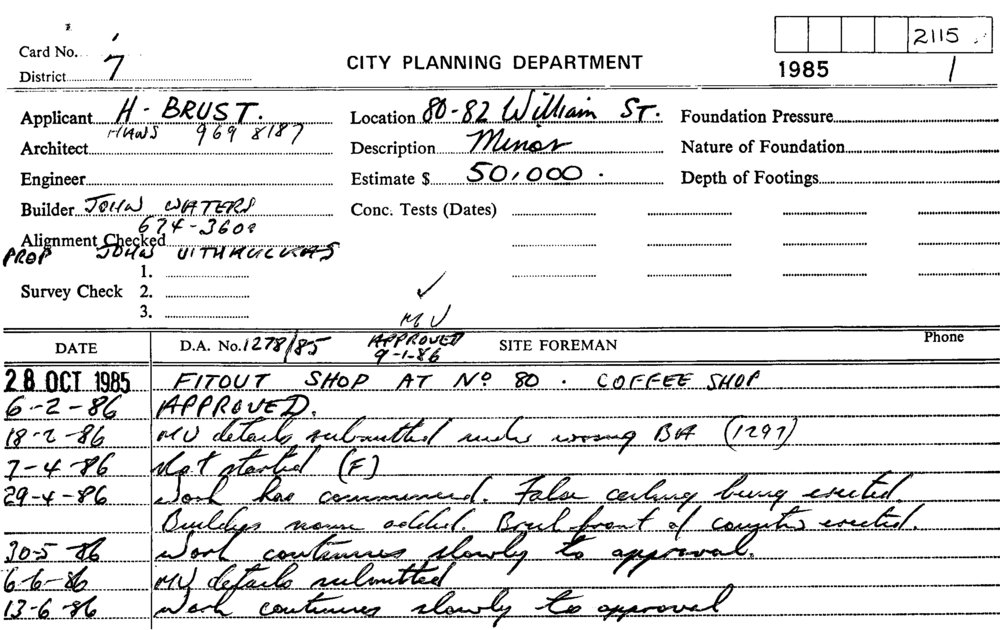 2115
Card No. 7
District
CITY PLANNING DEPARTMENT
1985 1
Applicant H. BRUST. Location 80-82 William ST. Foundation Pressure
HANS 969 8187
Architect Description Minor Nature of Foundation
Engineer Estimate $ 50,000. Depth of Footings
Builder JOHN WATERS Conc. Tests (Dates)
674-3600
Alignment Checked
PROP JOHN
1.
Survey Check 2.
3.
MV
DATE D.A. No. 1278/85 APPROVED SITE FOREMAN Phone
9-1-86
28 OCT 1985 FITOUT SHOP AT No 80. COFFEE SHOP
6-2-86 APPROVED.
18-2-86 MV details submitted under wrong BA (1297)
7-4-86 Not started (F)
29-4-86 Work has commenced. False ceiling being erected.
Builders name added. Brick front of counter erected.
30-5-86 Work continues slowly to approval.
6-6-86 MV details submitted
13-6-86 Work continues slowly to approval